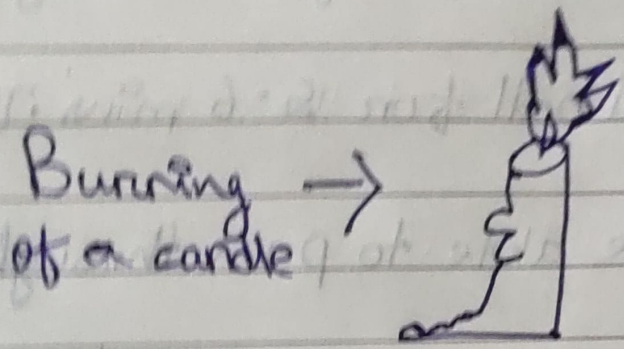 Burning →
of a candle